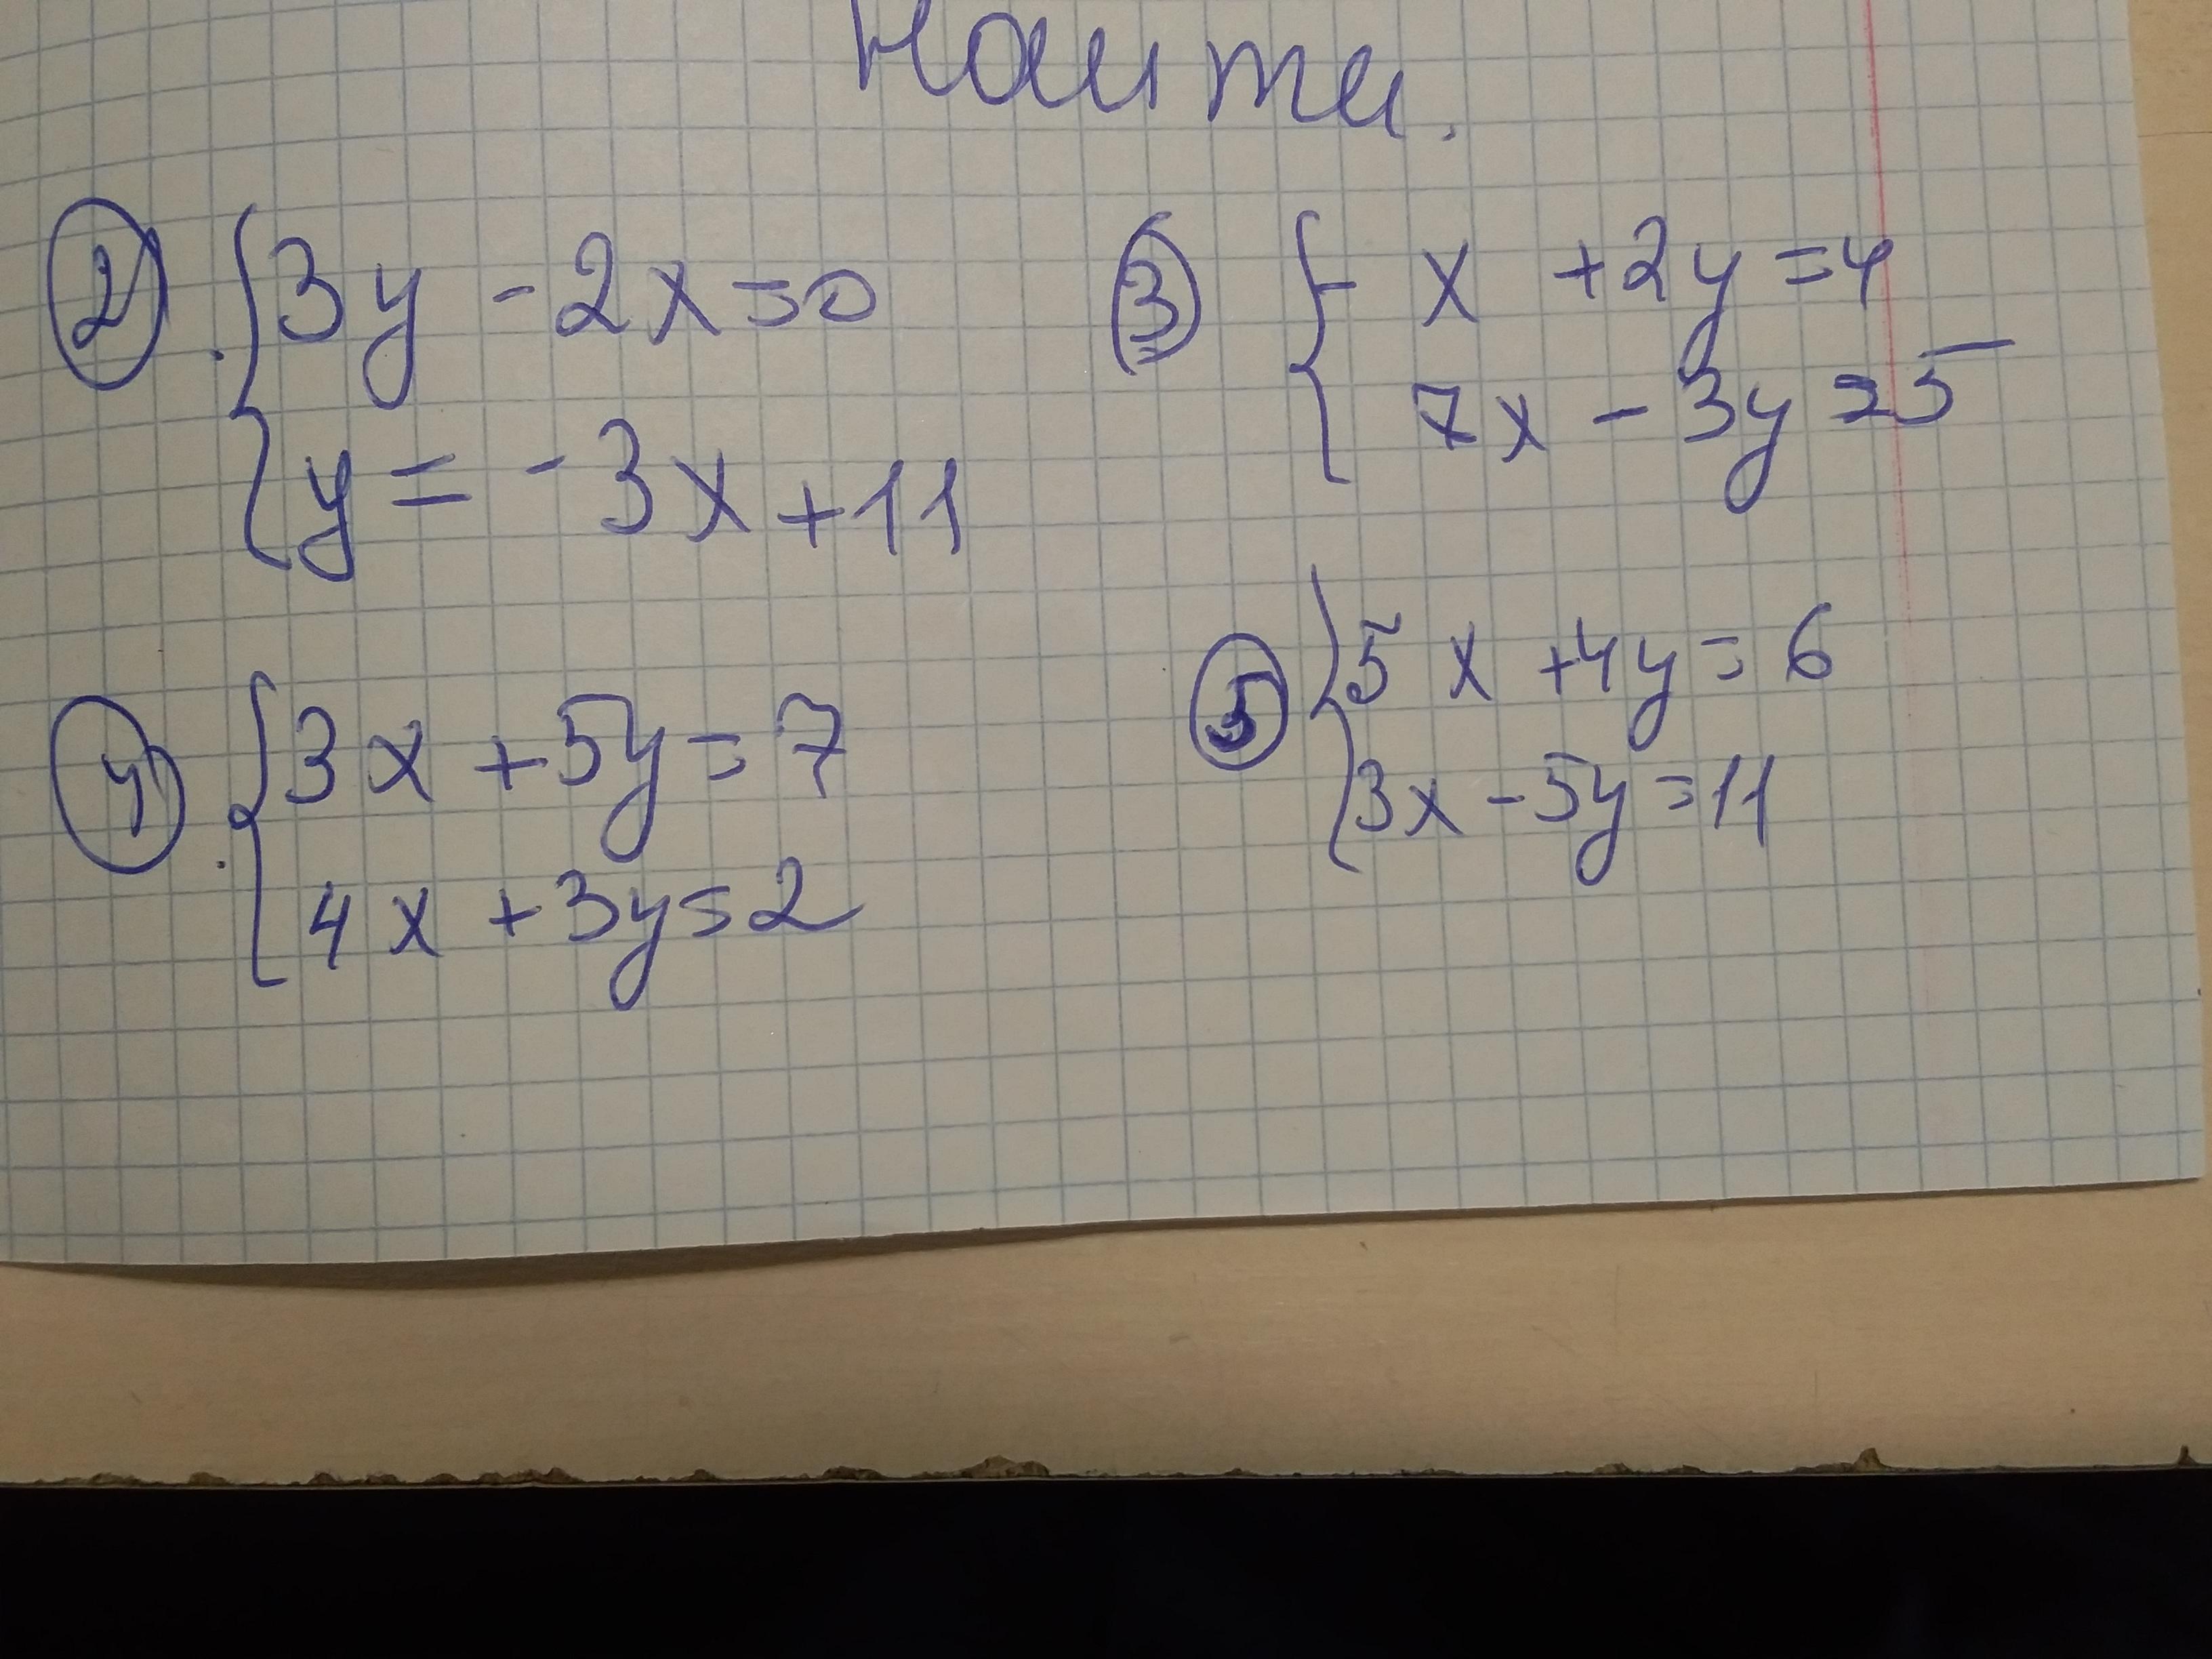 Найти.
② { 3y - 2x = 0
y = -3x + 11
③ { - x + 2y = 4
7x - 3y = 5
④ { 3x + 5y = 7
4x + 3y = 2
⑤ { 5x + 4y = 6
3x - 5y = 11